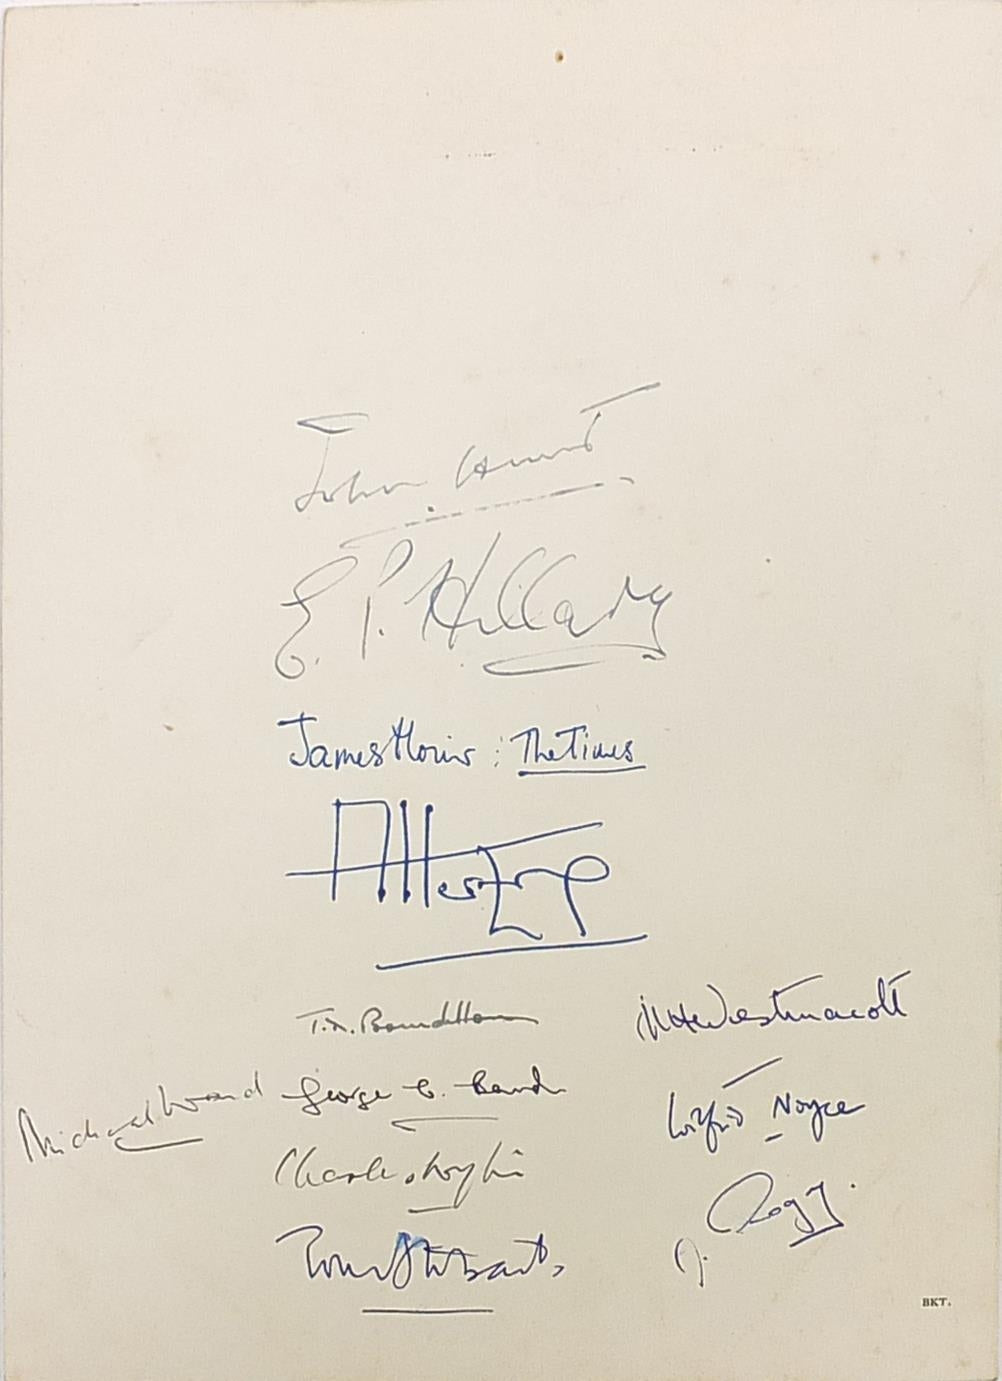 John Hunt
E. P. Hillary
James Morris : The Times
T.D. Bourdillon
MHWestmacott
Michael Ward
George C. Band
Wilfrid Noyce
Charles Wylie
A. Gregory.
Tom Stobart
BKT.